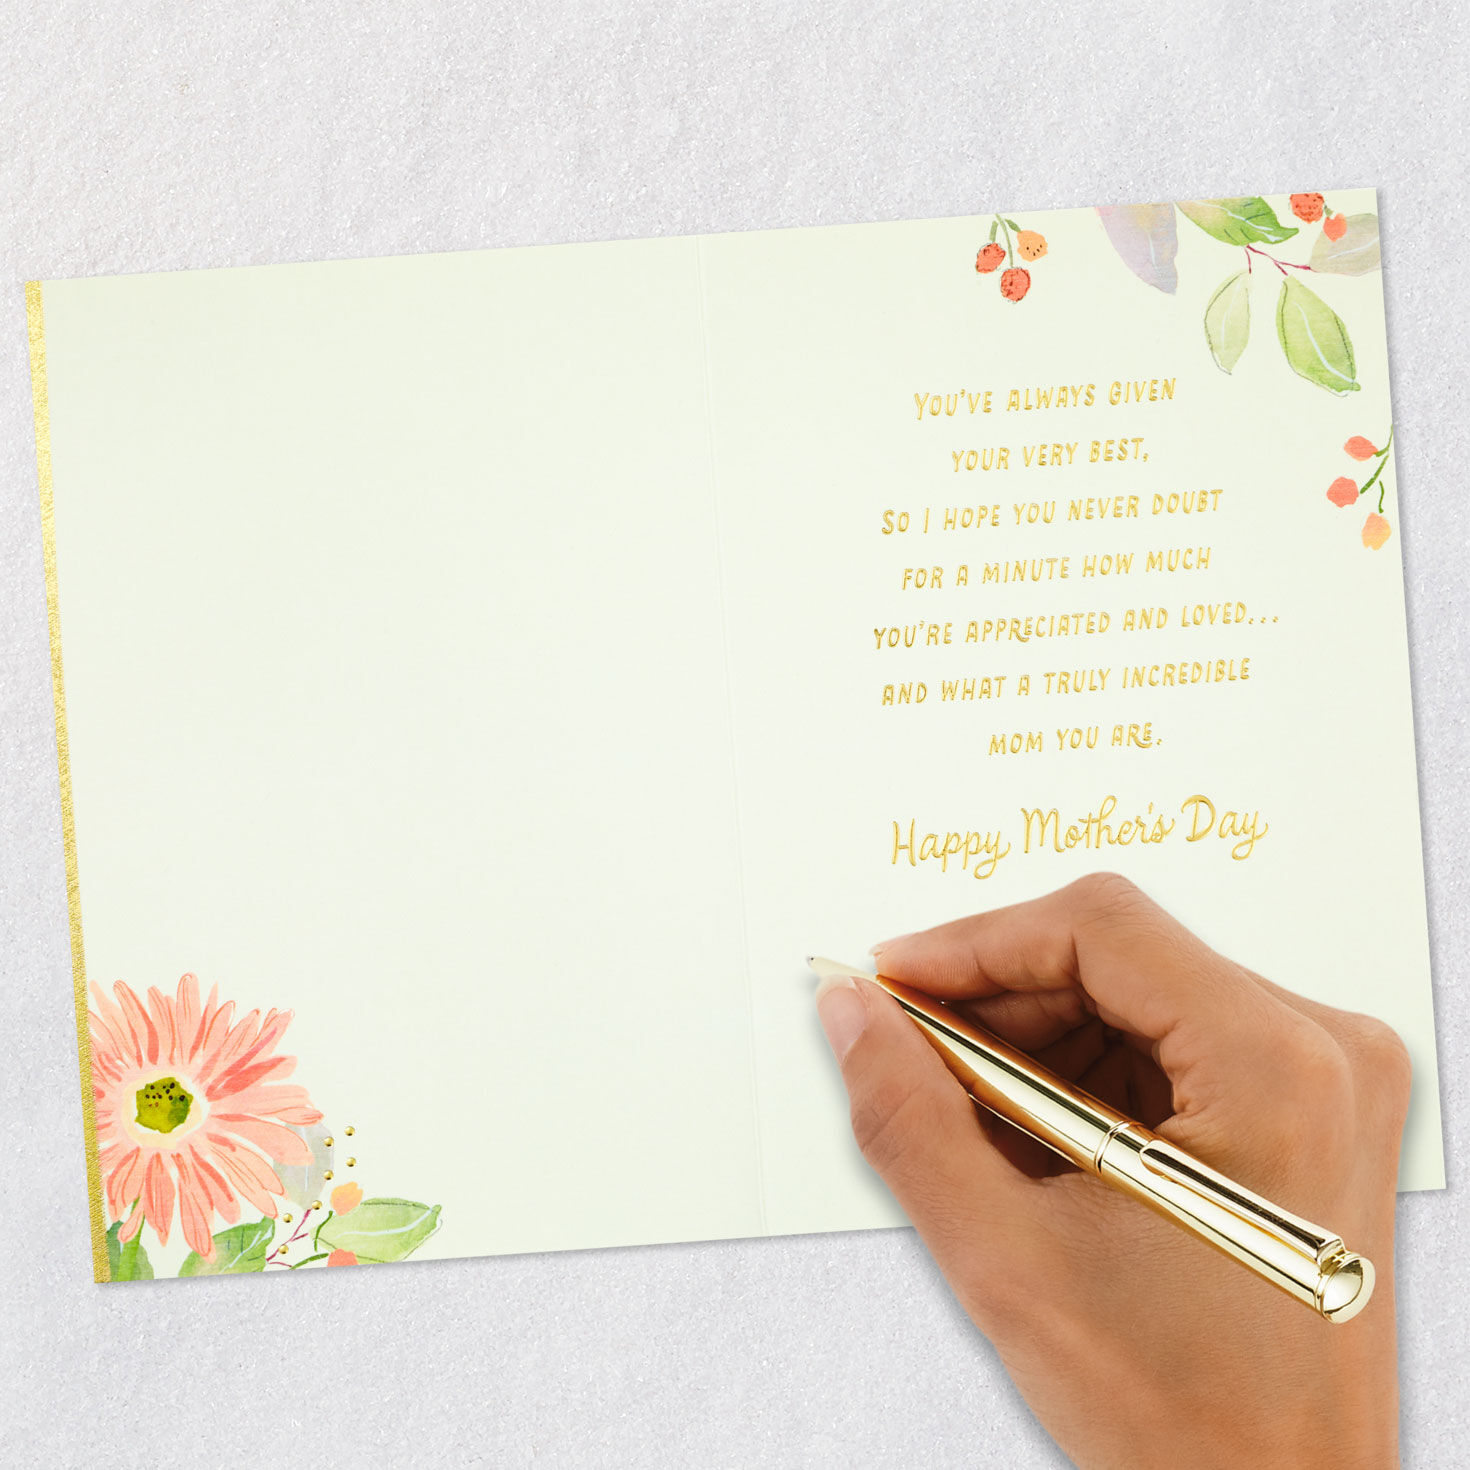 YOU'VE ALWAYS GIVEN
YOUR VERY BEST,
SO I HOPE YOU NEVER DOUBT
FOR A MINUTE HOW MUCH
YOU'RE APPRECIATED AND LOVED...
AND WHAT A TRULY INCREDIBLE
MOM YOU ARE.
Happy Mother's Day